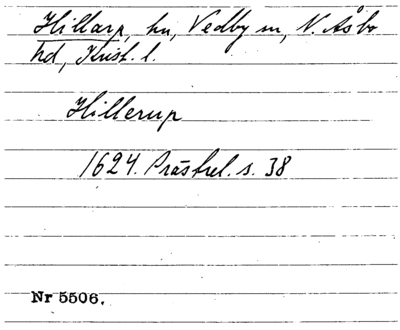 Hillarp, hu, Vedby sn, N. Åsbo
hd, Krist. l.
Hillerup
1624. Prästrel. s. 38
Nr 5506.